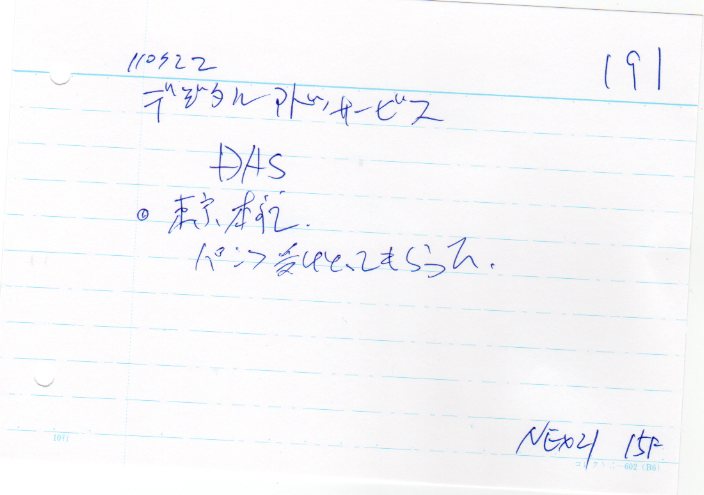 110522
191
デジタルアド・サービス
DAS
◎ 東京本社.
パンフ受けとってもらった.
NEX21 15F
1071
コレクト C-602 (B6)